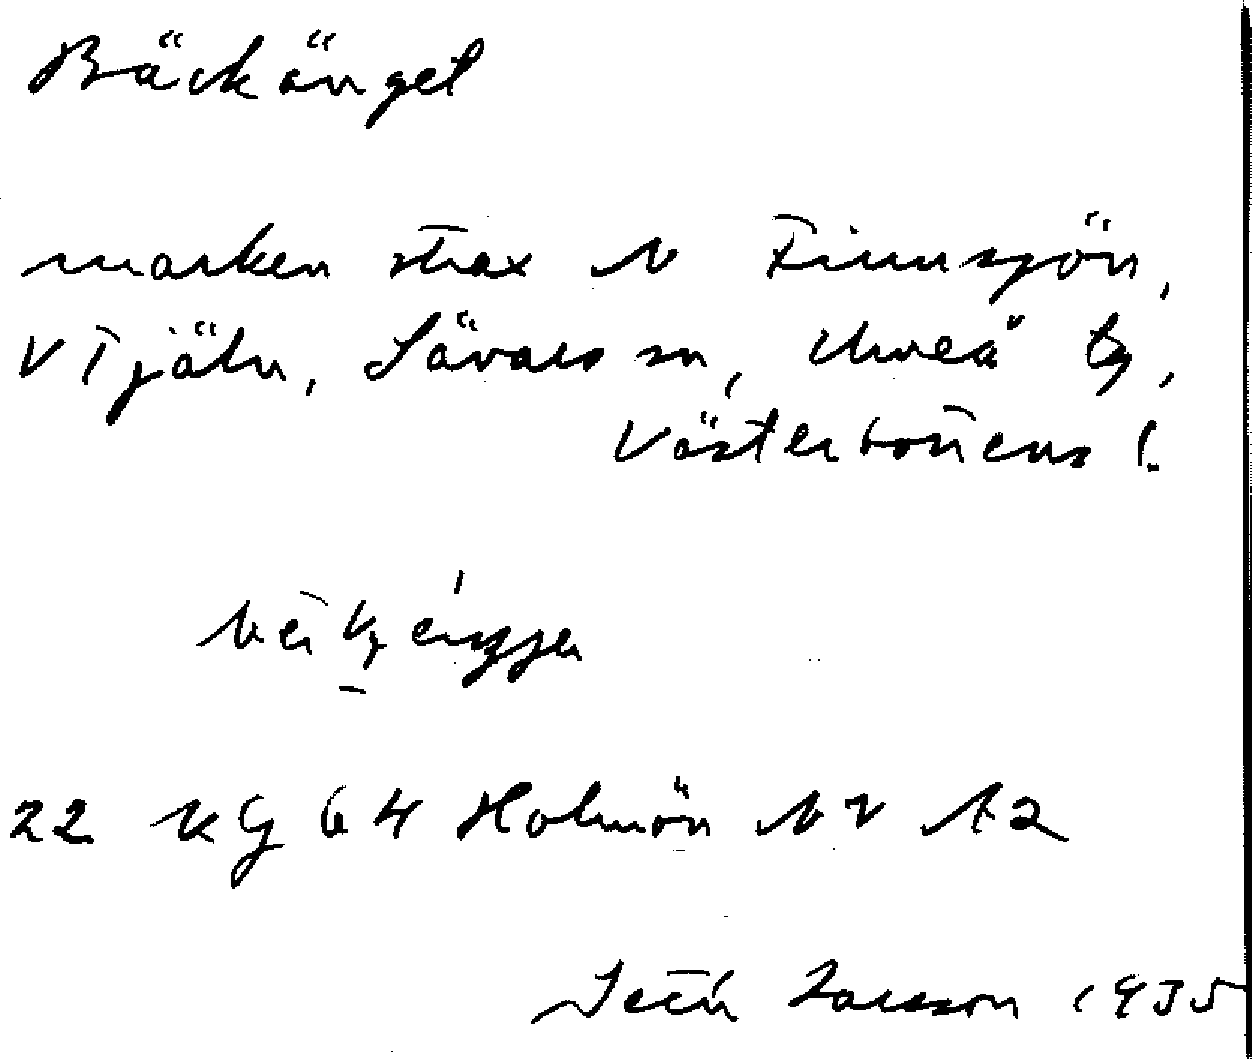 Bäckänget
marken strax N Finnsjön,
V Tjäln, Sävars sn, Umeå tg,
Västerbottens l.
22 KG 64 Holmön NV A2
Larsson 1935